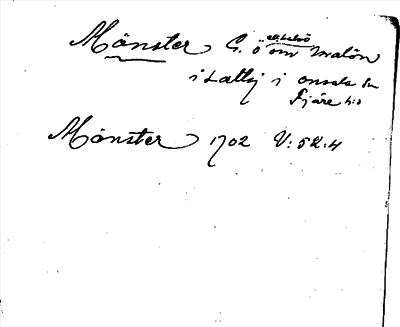 Mönster G. ö om Malön
i Lallij i onsala sn
Fjäre h:d
Mönster 1702 V:52:4